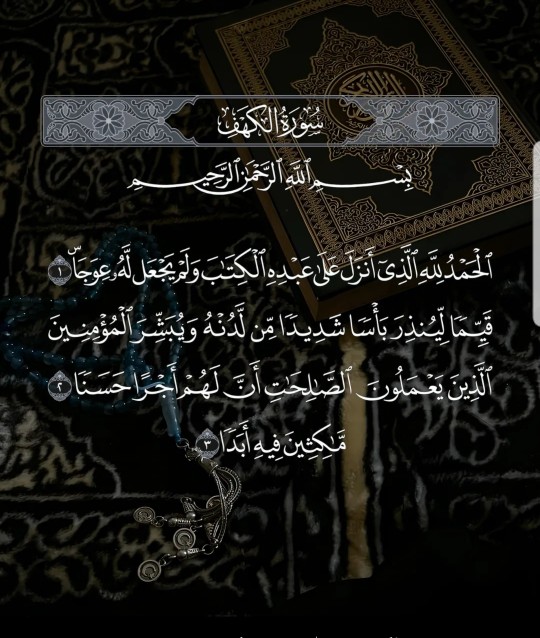 سُورَةُ الكَهْفِ
بِسْمِ ٱللَّهِ ٱلرَّحْمَٰنِ ٱلرَّحِيمِ
ٱلْحَمْدُ لِلَّهِ ٱلَّذِىٓ أَنزَلَ عَلَىٰ عَبْدِهِ ٱلْكِتَٰبَ وَلَمْ يَجْعَل لَّهُۥ عِوَجَاۜ ١
قَيِّمًا لِّيُنذِرَ بَأْسًا شَدِيدًا مِّن لَّدُنْهُ وَيُبَشِّرَ ٱلْمُؤْمِنِينَ
ٱلَّذِينَ يَعْمَلُونَ ٱلصَّٰلِحَٰتِ أَنَّ لَهُمْ أَجْرًا حَسَنًا ٢
مَّٰكِثِينَ فِيهِ أَبَدًا ٣